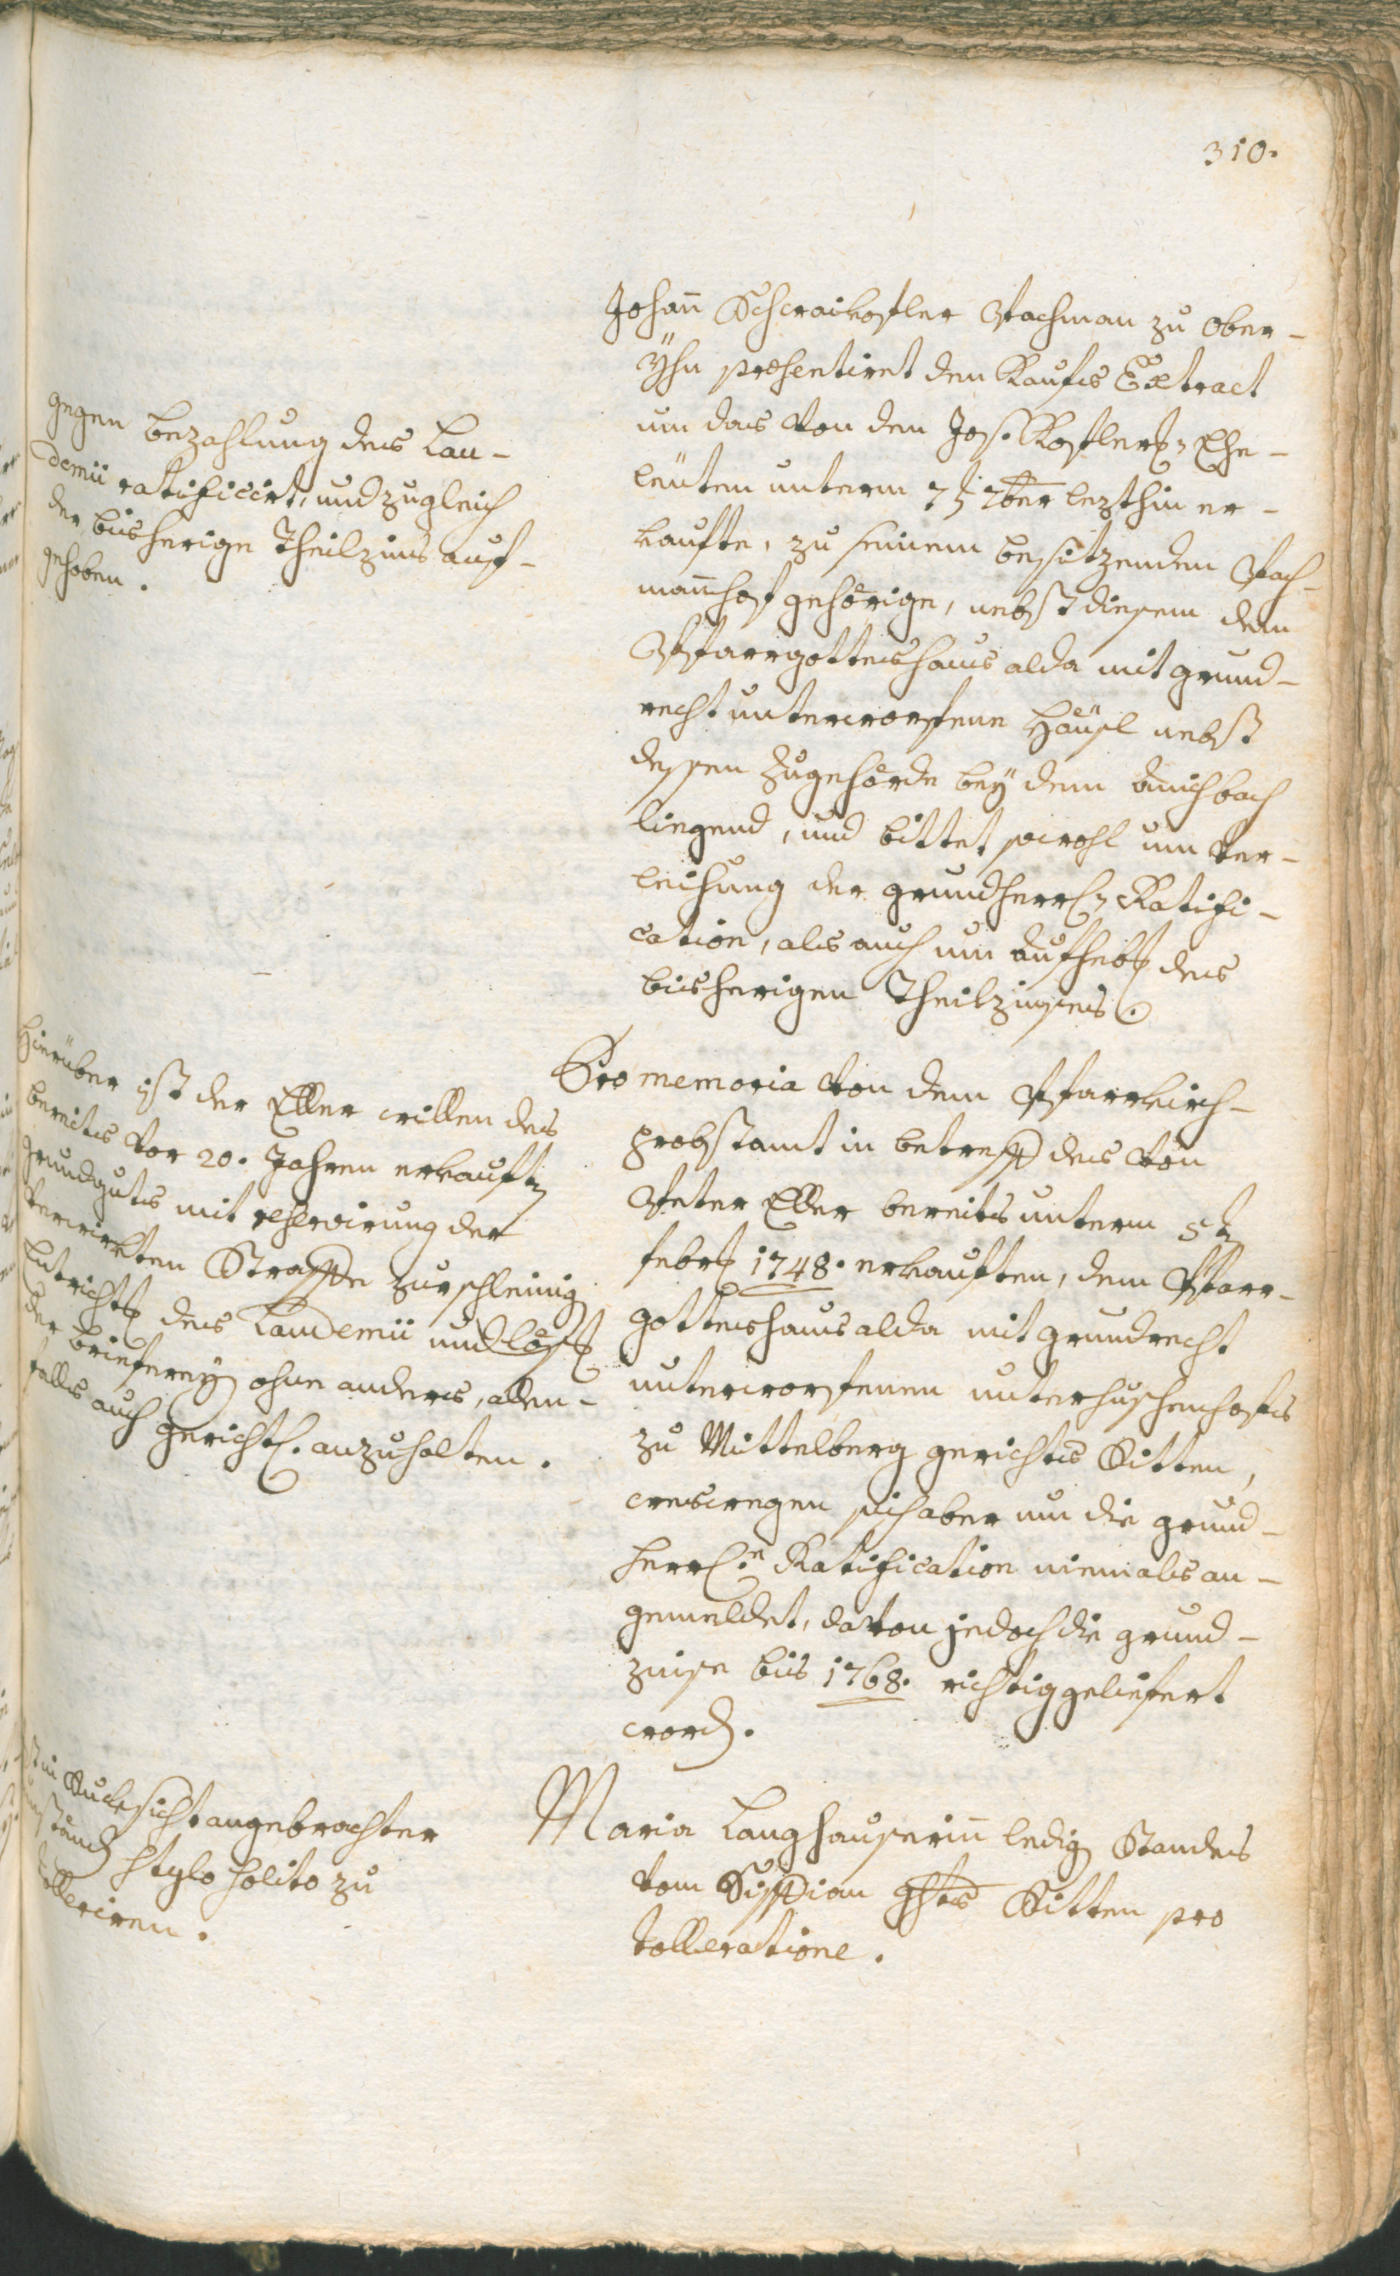 310.
Johann Schraikofler Pachman zu Ober-
Ÿhn præsentiret den Kaufs Extract
um das von den Jos: Kofler: Ehe-
leüten unterm 7t 7ber lezthin er-
kaufte, zu seinem besitzenden Pach-
mannhof gehörige, nebst diesem dem
Pfarrgotteshaus alda mit grund-
recht unterworfene Heüsl nebst
dessen Zugehörde beÿ dem
liegend, und bittet sowohl um ver-
leihung der grundherrl: Ratifi-
cation, als auch um aufheb: des
bisherigen Theilzinses.
gegen bezahlung des Lau-
demii ratificirt, und zugleich
der bisherige Theilzins auf-
gehoben.
Pro memoria von dem Pfarrkirch-
probstamt in betreff des von
Peter Eller bereits unterm 5t
febr: 1748. erkauften, dem Pfarr-
gotteshaus alda mit grundrecht
unterworfenen unterhuschenhofs
zu Mittelberg gerichts Ritten,
weswegen sich aber um die grund-
herrl:n Ratification niemals an-
gemeldet, davon jedoch die grund-
zinse bis 1768. richtig geliefert
word:.
Hierüber ist der Eller willen des
bereits vor 20. Jahren erkauft:
grundguts mit reservirung der
verwirkten Straffe zu schleinig:
Entricht: des Laudemii und lös:
der brieferey ohne anders, allen-
falls auch gerichtl: anzuhalten.
Maria Langhauserin ledig Standes
vom Siffian ghts Ritten pro
tolleratione.
ist in Rucksicht angebrachter
umständ: stylo solito zu
tolleriren.